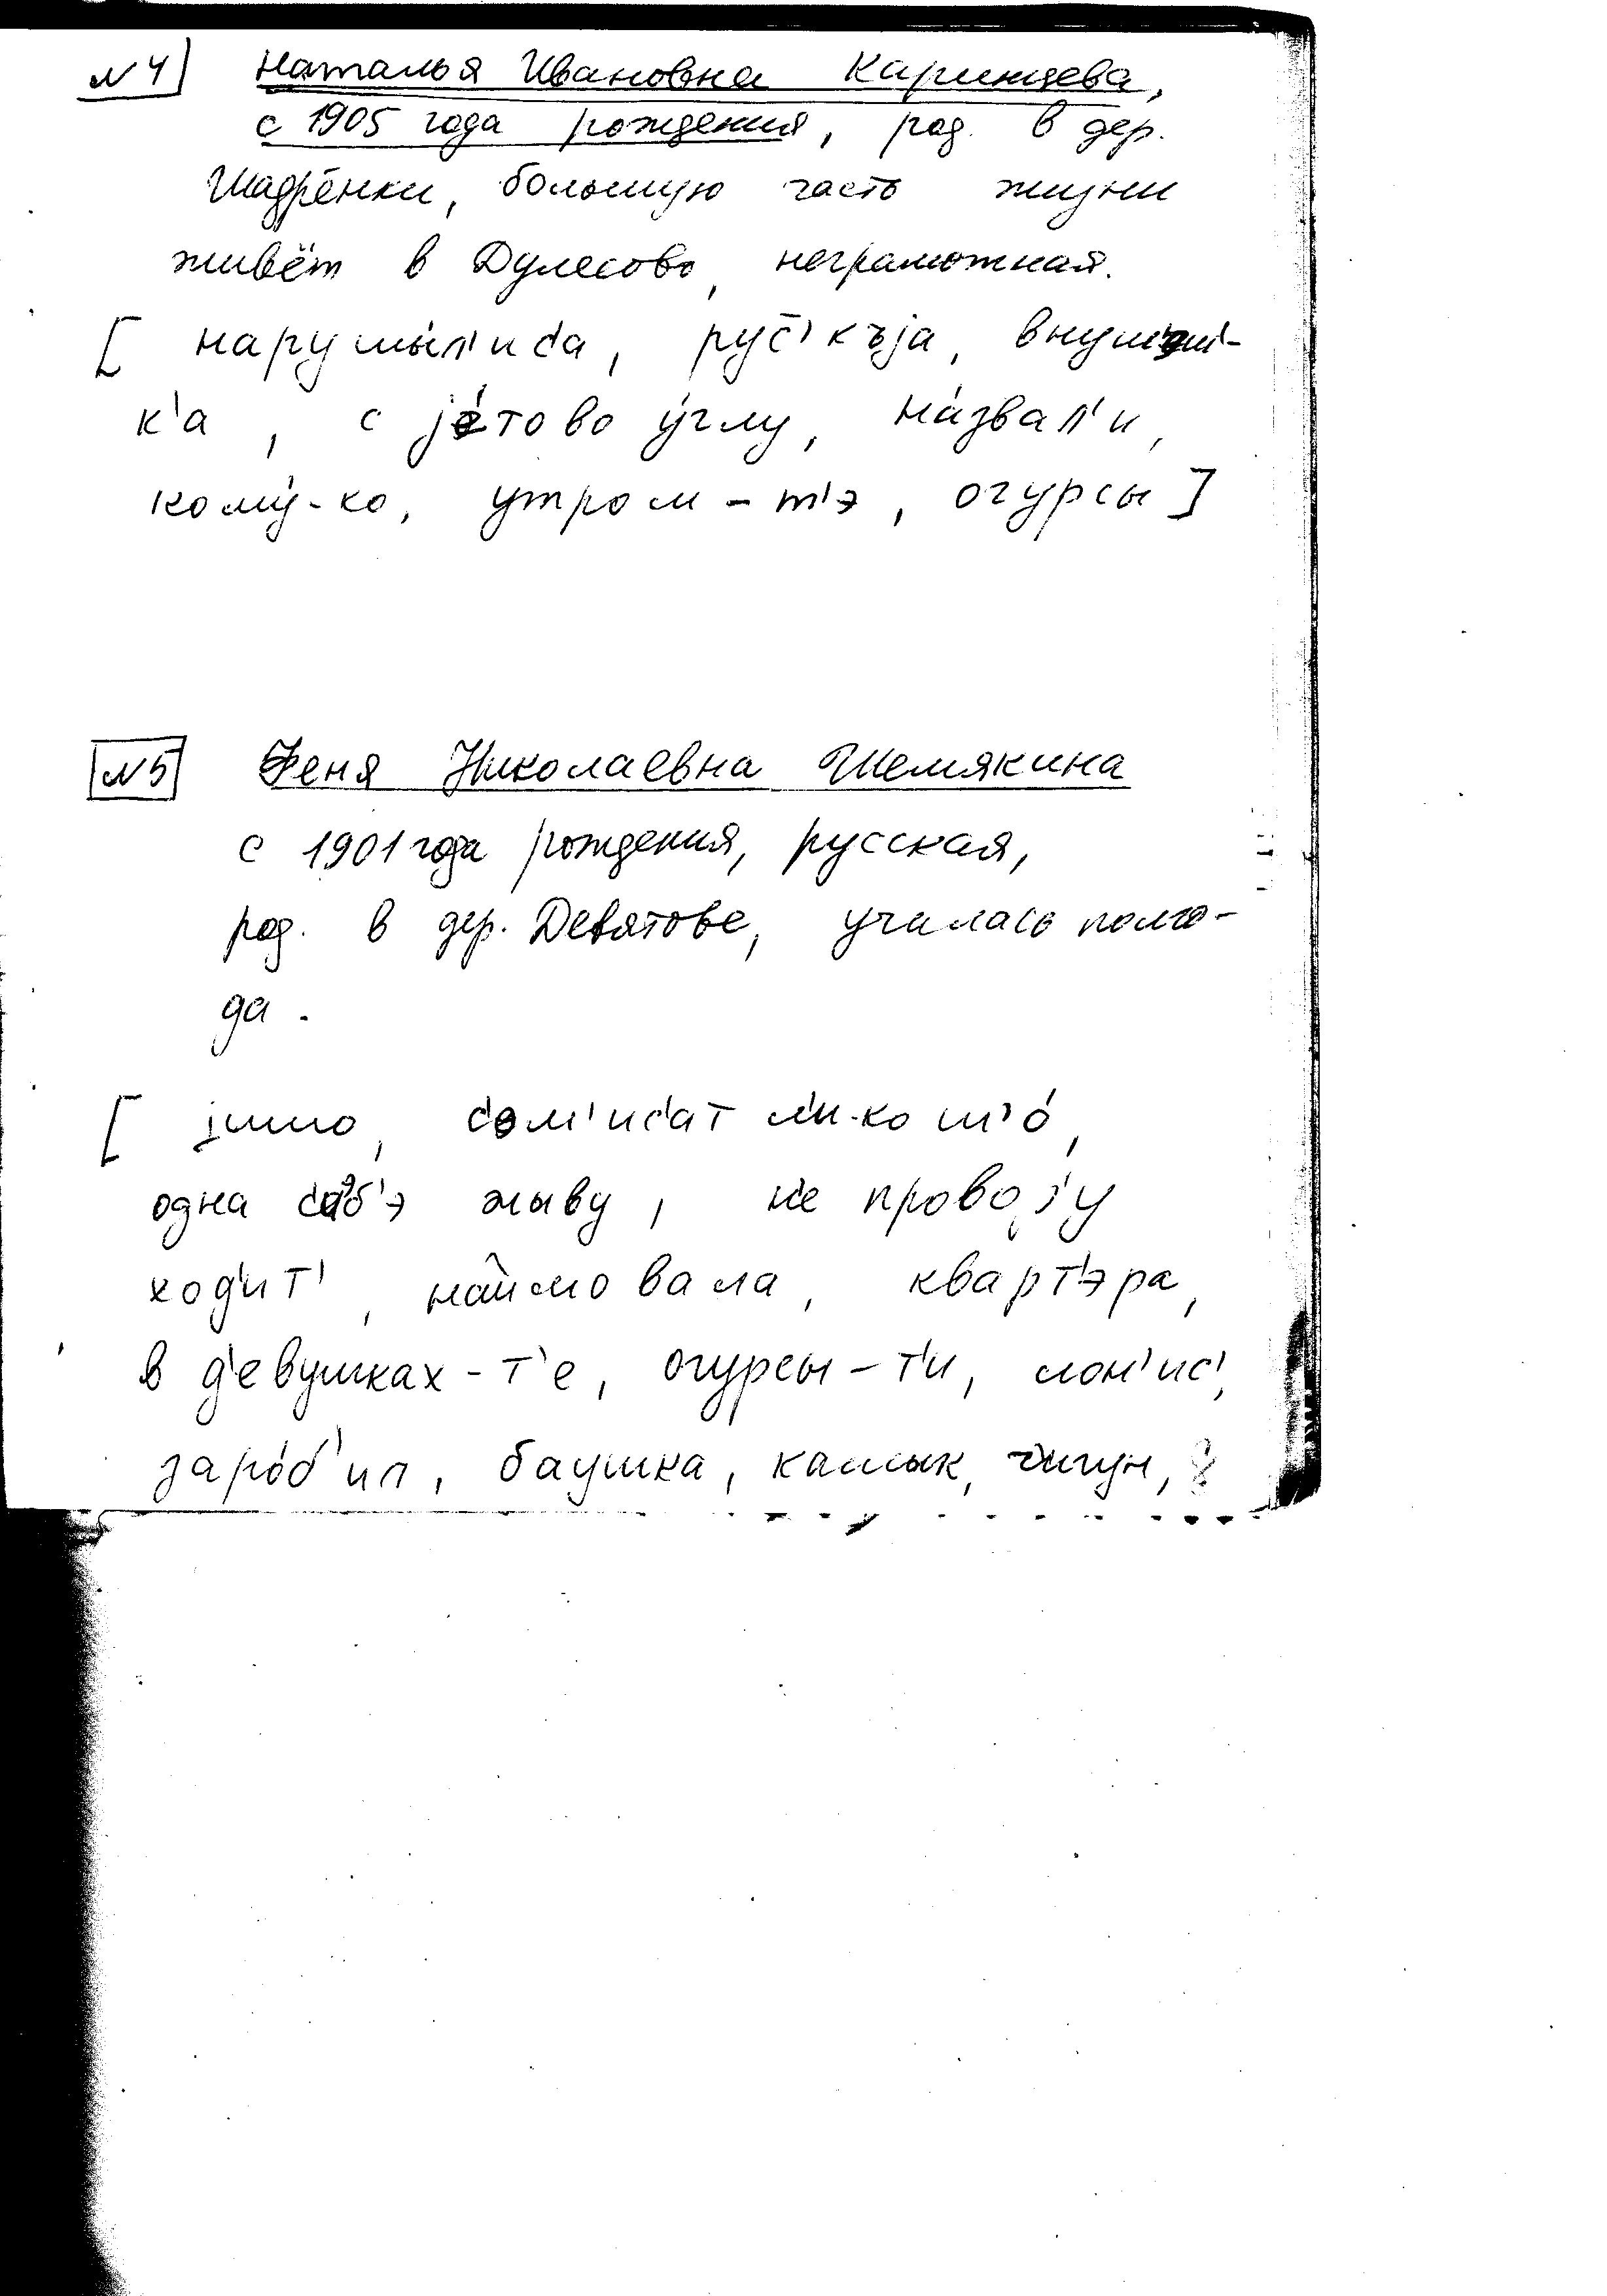 N 4 Наталья Ивановна Каринцева,
с 1905 года рождения, род. в дер.
Шадрёнки, большую часть жизни
живёт в Дулесово, неграмотная.
[ нарушы́л'ис'а, рус'къjа, внуш'эш'-
к'а, с jэ́тово у́глу, на́звал'и,
кому́-ко, утром-т'э, огурсы ]
N 5 Феня Николаевна Шемякина
с 1901 года рождения, русская,
род. в дер. Девятове, училась полго-
да.
[ jимо, с'эм'ис'ат ли-ко ш'о́,
одна с'эб'э жыву, н'е провоjу
ход'ит', наймовала, кварт'эра,
в д'евушках-т'е, огурсы-т'и, лон'ис',
заро́б'ил, баушка, камык, чигун,